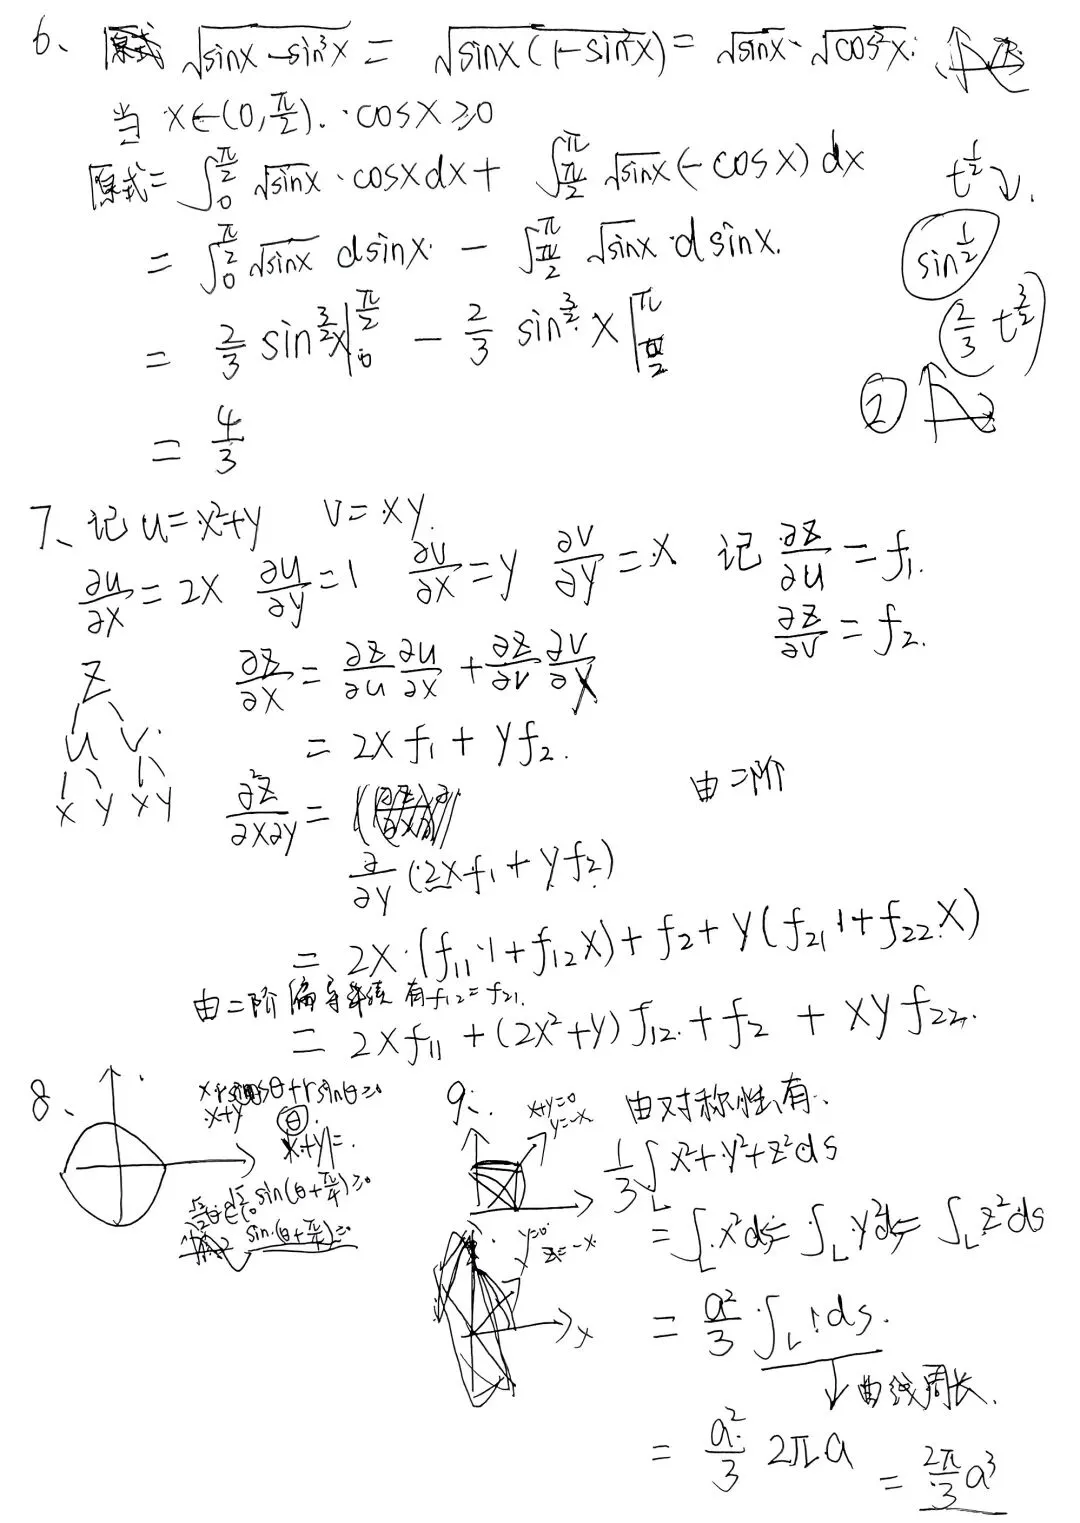 6、原式 √(sinx-sin³x) = √(sinx(1-sin²x)) = √sinx · √cos²x
当 x∈(0, π/2). cosx≥0
原式= ∫₀^(π/2) √sinx · cosx dx + ∫_(π/2)^π √sinx (-cosx) dx
t^(1/2) ↘.
= ∫₀^(π/2) √sinx dsinx - ∫_(π/2)^π √sinx · dsinx.
sin^(1/2)
= 2/3 sin^(3/2)x |₀^(π/2) - 2/3 sin^(3/2) x |_(π/2)^π
(2/3 t^(3/2))
②
= 4/3
7、记 u=x²+y v=xy.
∂u/∂x = 2x ∂u/∂y = 1 ∂v/∂x = y ∂v/∂y = x 记 ∂z/∂u = f₁.
∂z/∂v = f₂.
z
u v
x y x y
∂z/∂x = ∂z/∂u ∂u/∂x + ∂z/∂v ∂v/∂x
= 2x f₁ + y f₂.
由二阶
∂²z/∂x∂y =
∂/∂y (2xf₁ + yf₂)
= 2x·(f₁₁·1+f₁₂x) + f₂ + y(f₂₁·1+f₂₂x)
由二阶偏导连续 有f₁₂=f₂₁.
= 2xf₁₁ + (2x²+y) f₁₂ + f₂ + xy f₂₂.
8、
θ+rsinθ≥0
x+y θ
x+y=
sin(θ+π/4)≥0
sin(θ+π/4)≥0
9、
x+y=0
y=-x
y=0
z=-x
x
由对称性有、
1/3 ∫_L x²+y²+z² ds
= ∫_L x²ds = ∫_L y²ds = ∫_L z²ds
= a²/3 · ∫_L 1ds.
↓ 曲线周长.
= a²/3 2πa = 2π/3 a³